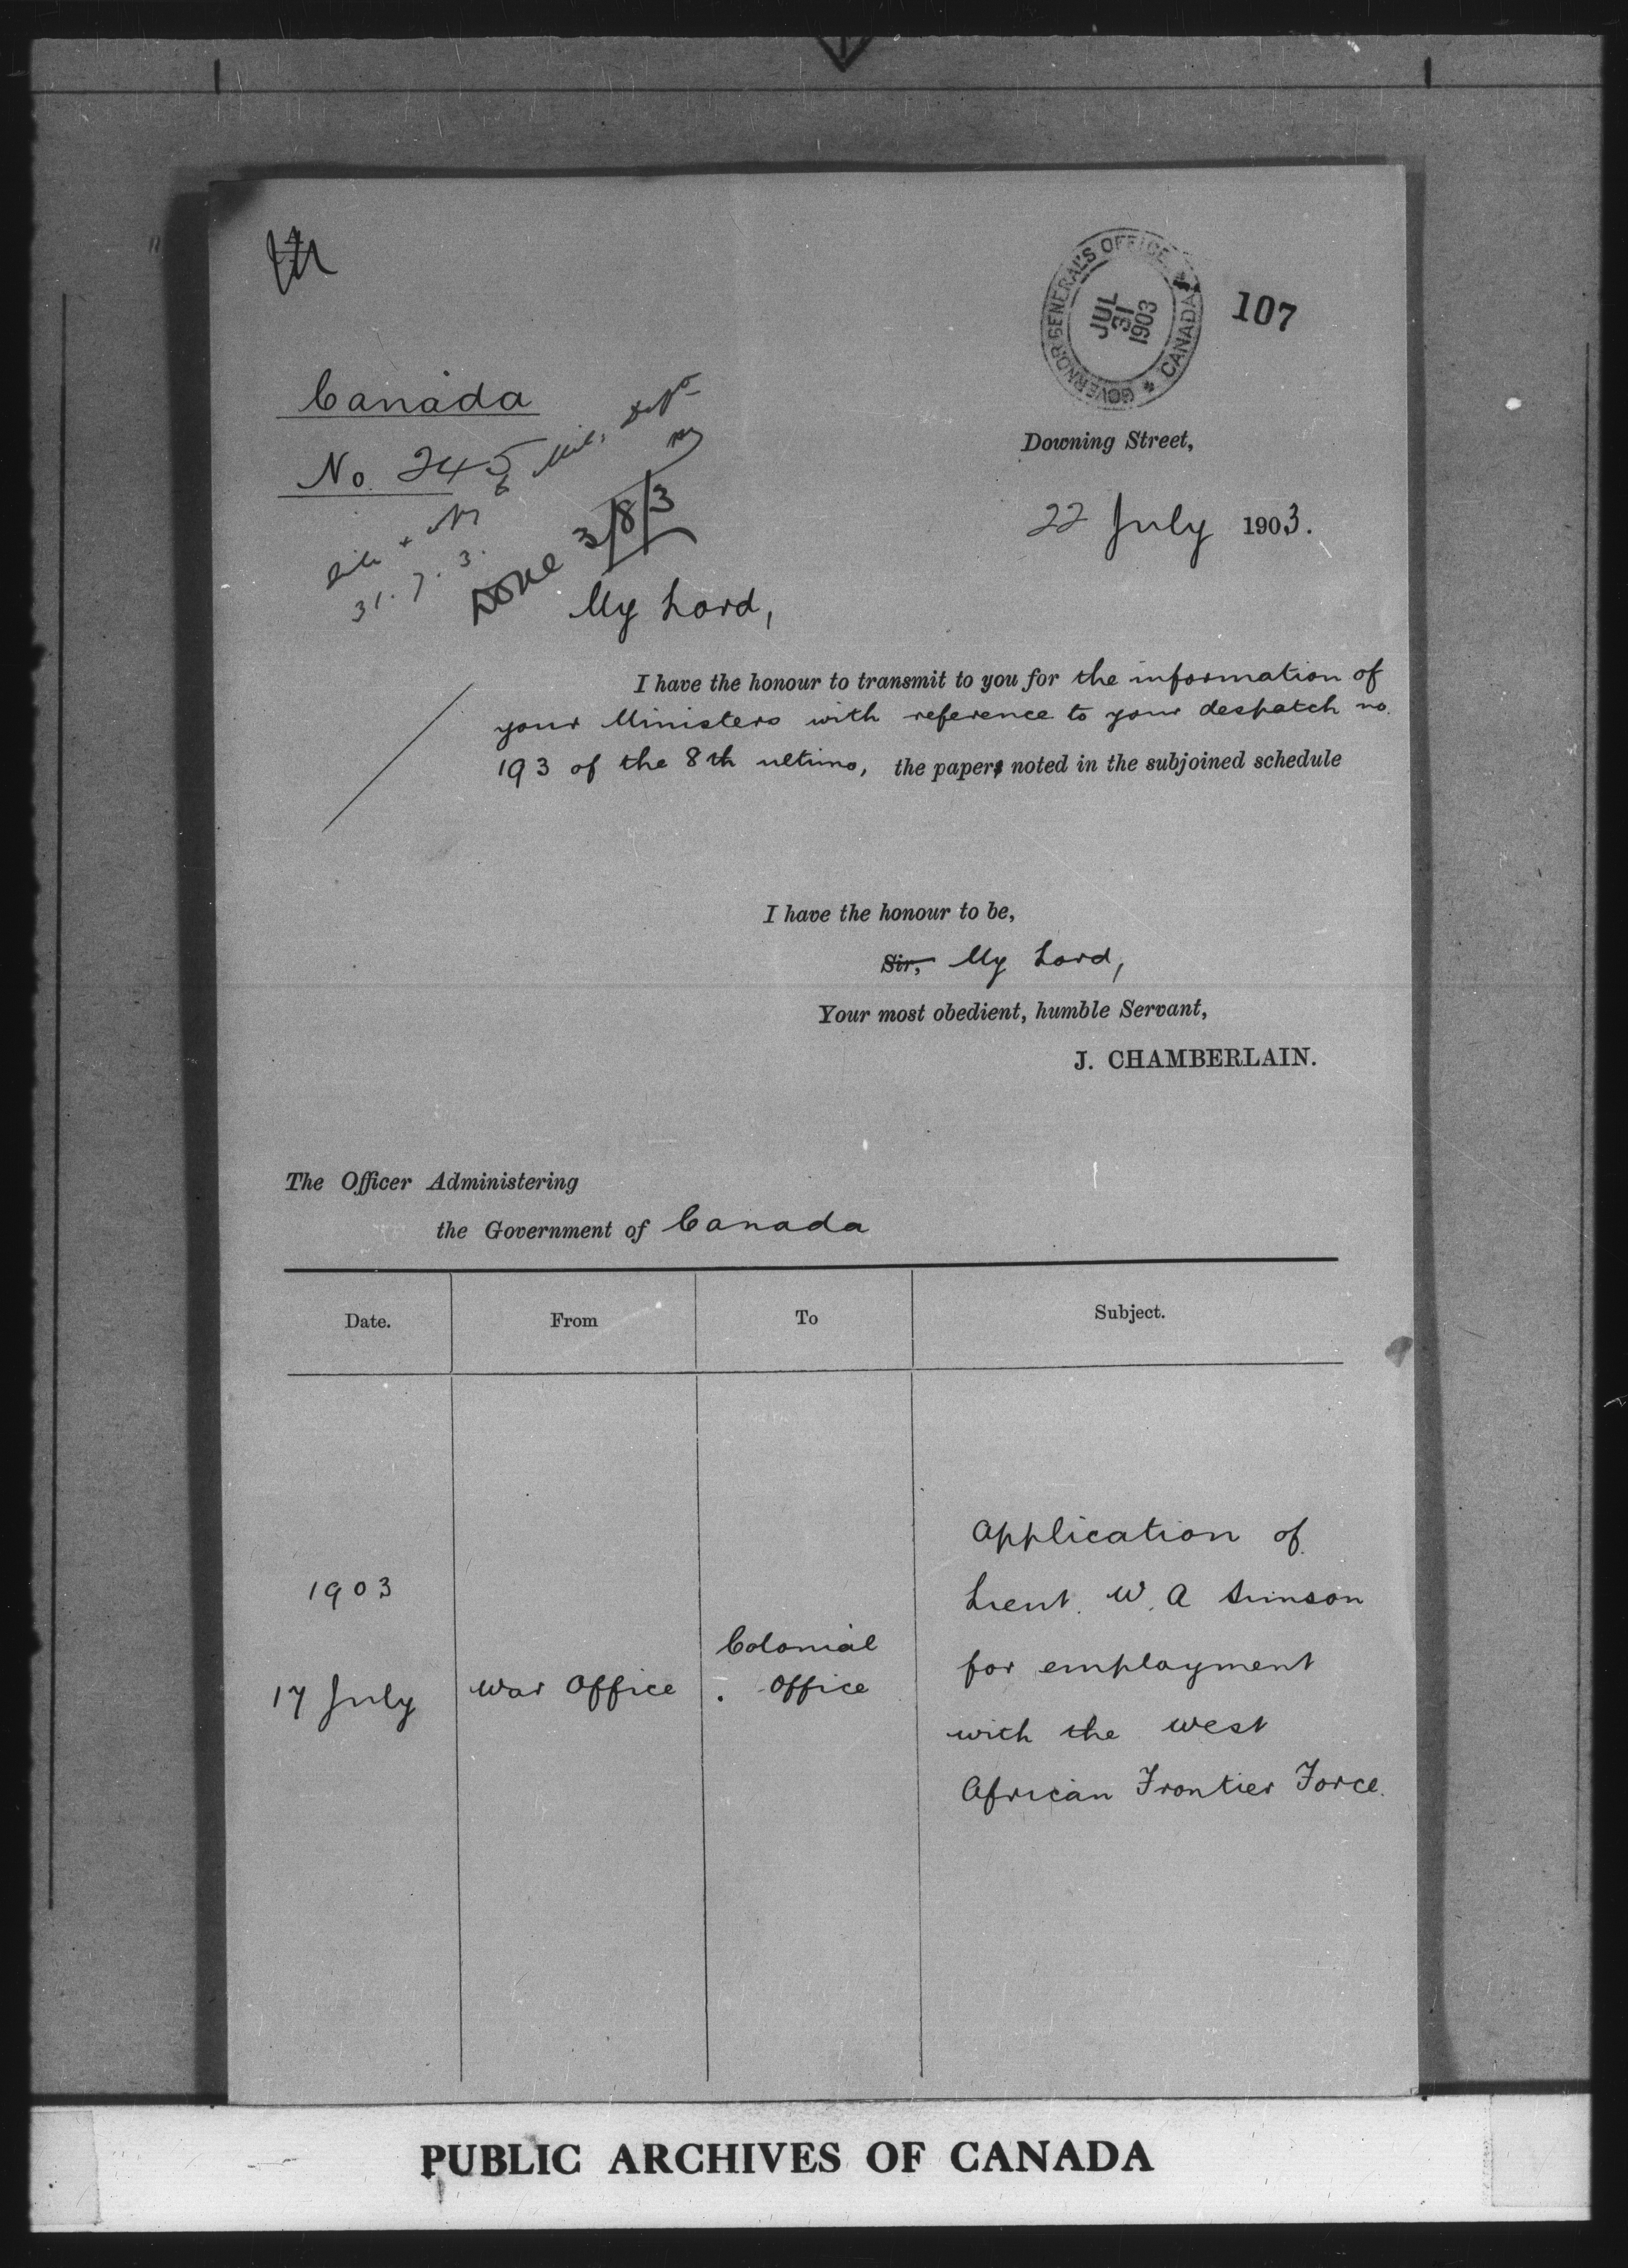 GOVERNOR GENERAL'S OFFICE
CANADA
JUL
31
1903
107
Canada
No. 245
Downing Street,
22 July 1903.
31. 7. 3.
Done 3/8/3
My Lord,
I have the honour to transmit to you for the information of
your Ministers with reference to your despatch no.
193 of the 8th ultimo, the paper noted in the subjoined schedule
I have the honour to be,
Sir, My Lord,
Your most obedient, humble Servant,
J. CHAMBERLAIN.
The Officer Administering
the Government of Canada
Date. From To Subject.
Application of
1903
Lieut. W. A Simson
Colonial
for employment
17 July War Office Office
with the West
African Frontier Force.
PUBLIC ARCHIVES OF CANADA